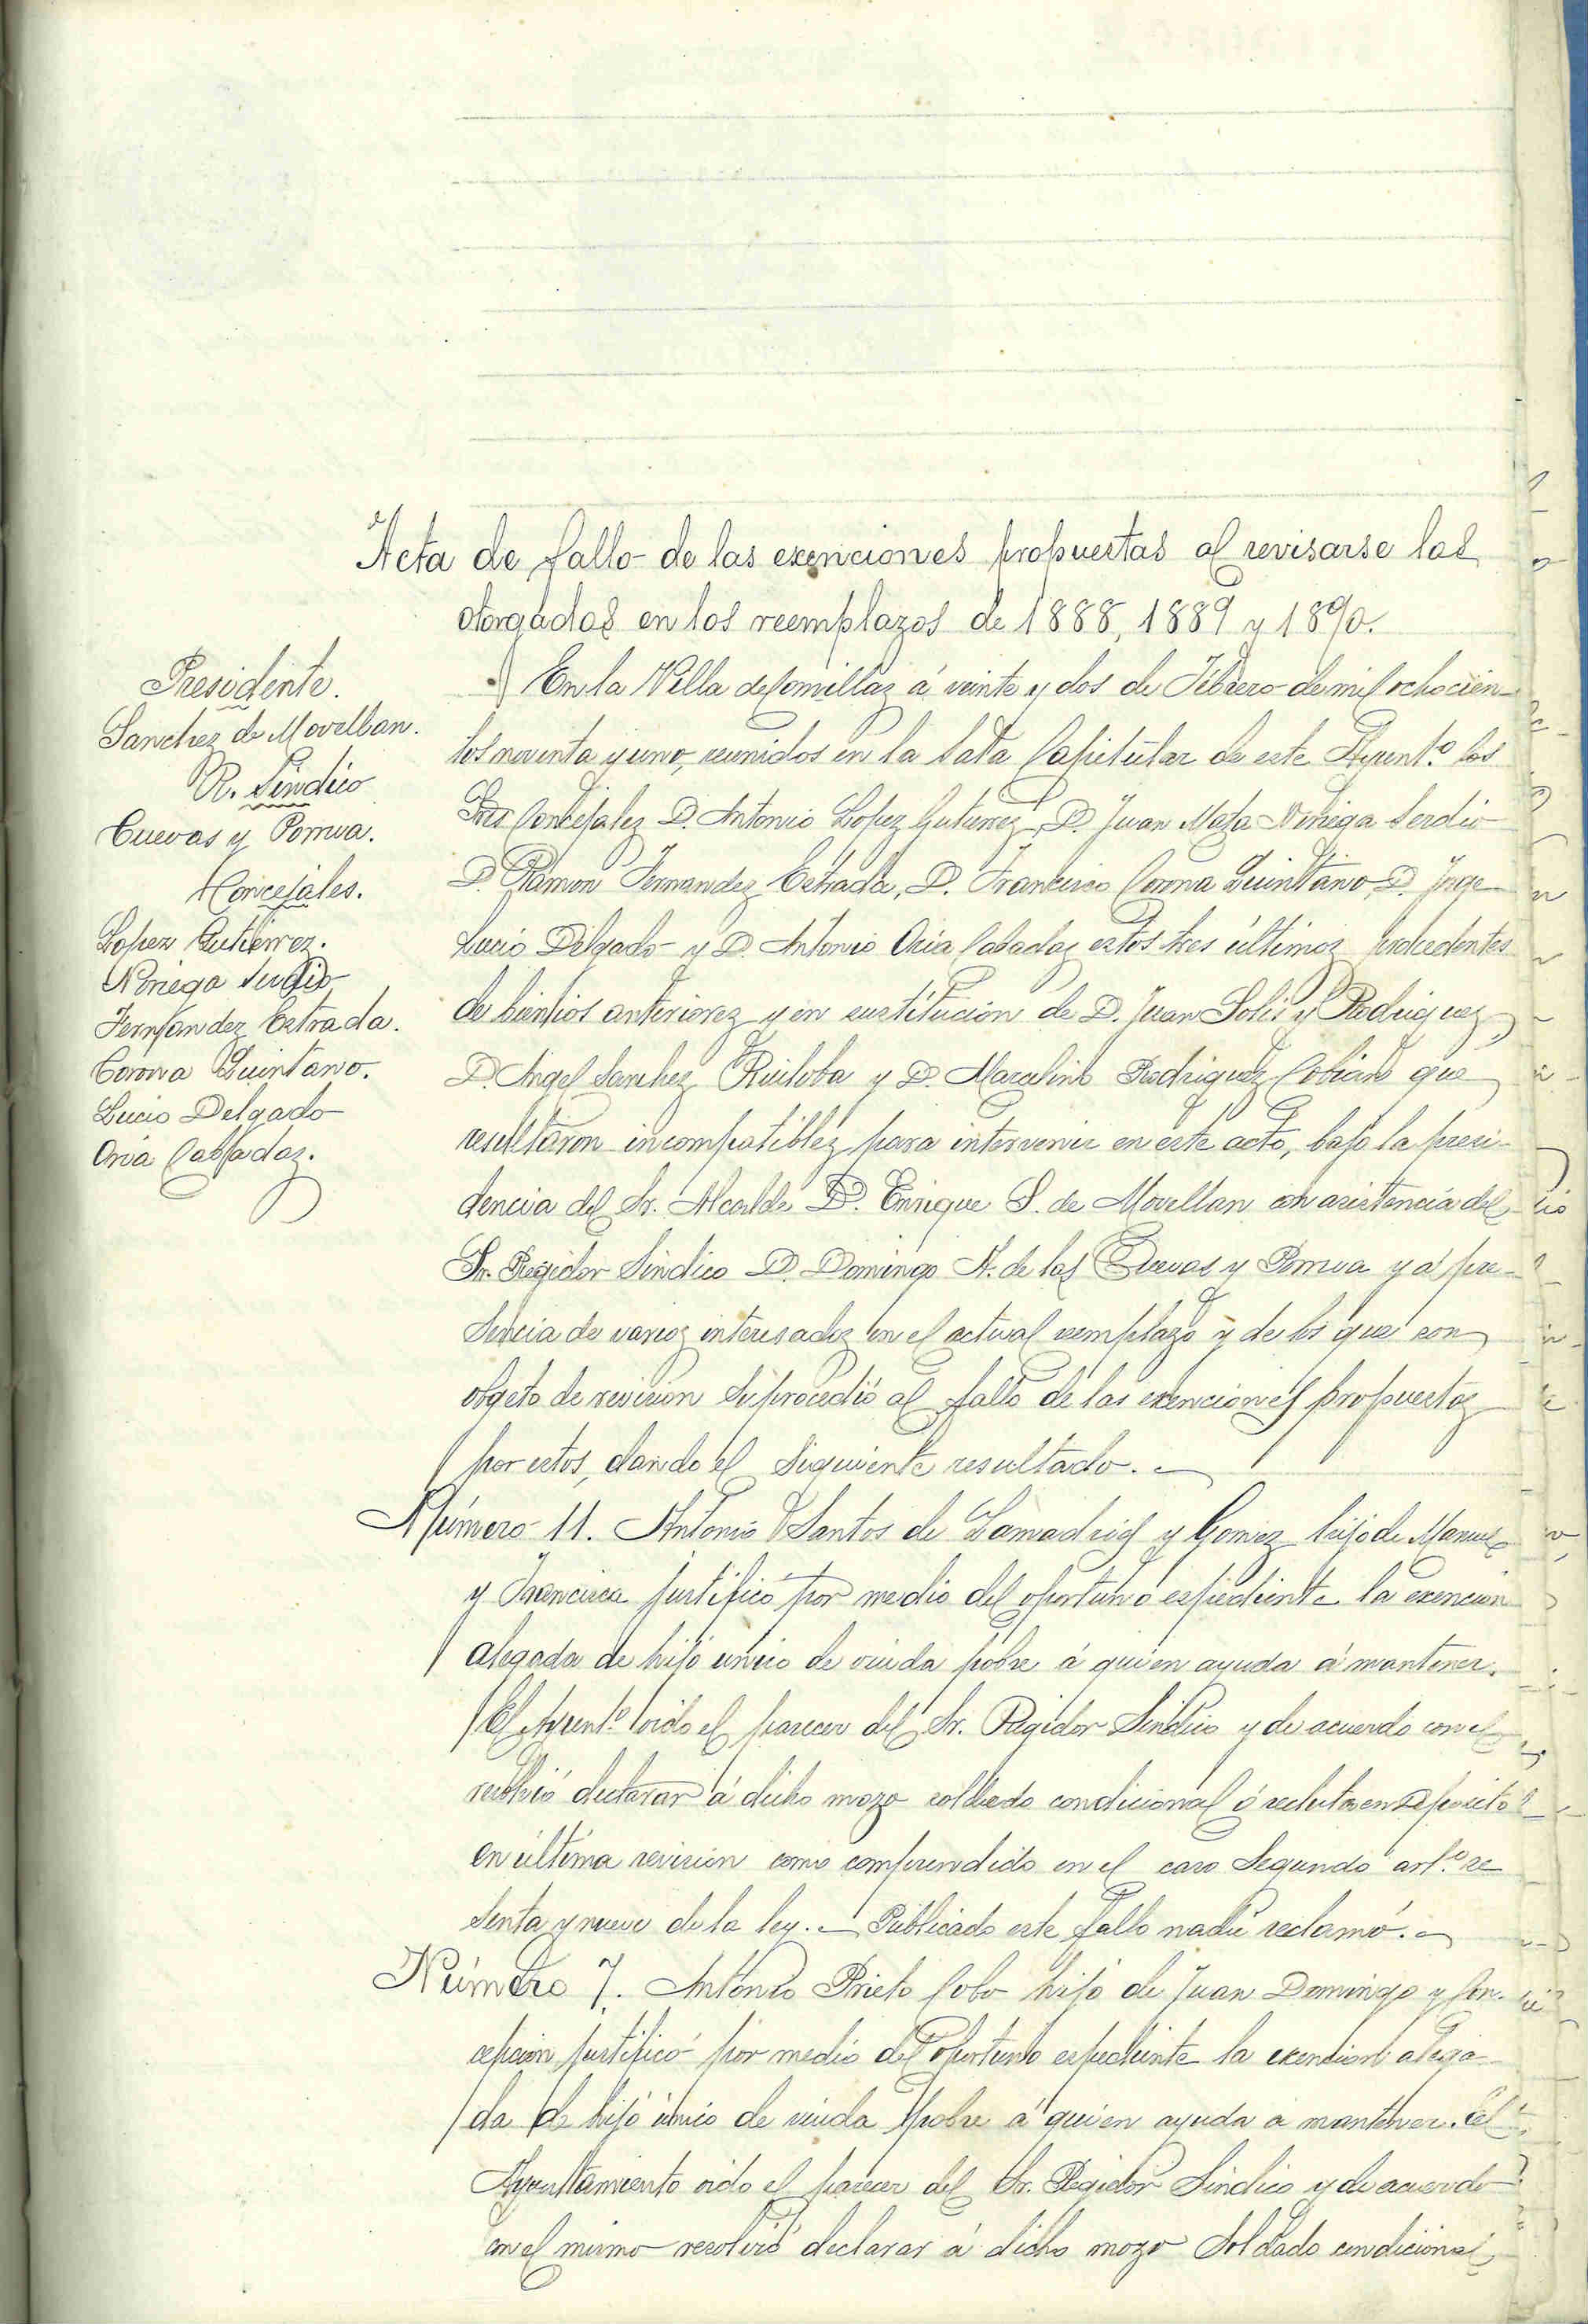 Acta de fallo de las exenciones propuestas al revisarse las
otorgadas en los reemplazos de 1888, 1889 y 1890.
Presidente.
Sanchez de Movellan.
R. Sindico
Cuevas y Porrua.
Concejales.
Lopez Gutierrez.
Noriega Serdio
Fernandez Estrada.
Corona Quintano.
Lucio Delgado
Oria Cabladas.
En la Villa de Comillas á veinte y dos de Febrero de mil ochocien-
tos noventa y uno, reunidos en la Sala Capitular de este Ayunt.º los
Sres Concejales D. Antonio Lopez Gutierrez, D. Juan Noriega Serdio
D. Ramon Fernandez Estrada, D. Francisco Corona Quintano, D. Jorge
Lucio Delgado y D. Antonio Oria estos tres últimos procedentes
de bienios anteriores y en sustitución de D. Juan Solis y Rodriguez,
D. Angel Sanchez Ruiloba y D. Marcelino Rodriguez Cobian que
resultaron incompatibles para intervenir en este acto, bajo la presi-
dencia del Sr. Alcalde D. Enrique S. de Movellan con asistencia del
Sr. Regidor Sindico D. Domingo A. de las Cuevas y Porrua y á pre-
sencia de varios interesados en el actual reemplazo y de los que son
objeto de revisión se procedió al fallo de las exenciones propuestas
por estos, dando el siguiente resultado.
Número 11. Antonio Santos de Lamadrid y Gomez hijo de Manuel
y Francisca justificó por medio del oportuno espediente la exencion
alegada de hijo unico de viuda pobre á quien ayuda á mantener.
El Ayunt.º oido el parecer del Sr. Regidor Sindico y de acuerdo con el
resolvió declarar á dicho mozo soldado condicional ó recluta en Deposito
en última revision como comprendido en el caso segundo art.º se
senta y nueve de la ley. — Publicado este fallo nadie reclamó.
Número 7. Antonio Prieto Cobo hijo de Juan Domingo y Con-
cepcion justificó por medio del oportuno espediente la exencion alega-
da de hijo único de viuda pobre á quien ayuda a mantener. El
Ayuntamiento oido el parecer del Sr. Regidor Sindico y de acuerdo
con el mismo resolvió declarar á dicho mozo Soldado condicional